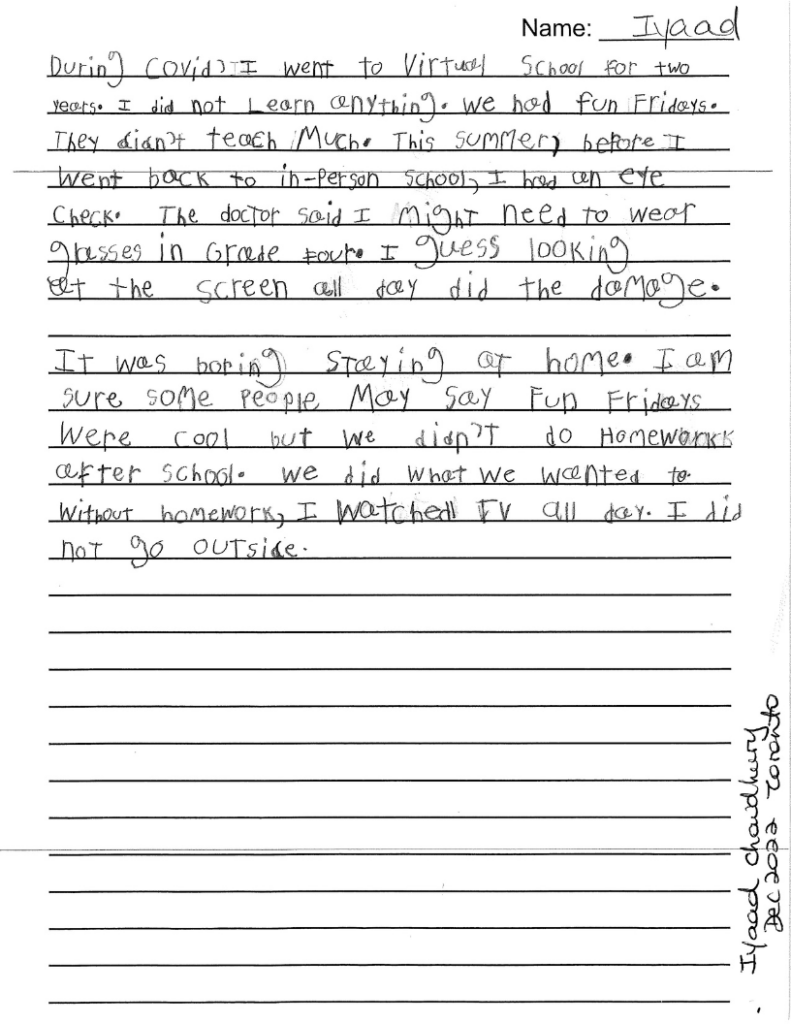 Name: Iyaad
During Covid I went to Virtual School for two
years. I did not Learn anything. we had fun Fridays.
They didn't teach Much. This summer, before I
went back to in-person school, I had an eye
Check. The doctor said I might need to wear
glasses in Grade Four. I guess looking
at the screen all day did the damage.
It was boring staying at home. I am
sure some people May say Fun Fridays
were cool but we didn't do Homework
after school. we did what we wanted to.
Without homework, I watched TV all day. I did
not go outside.
Iyaad Chaudhury
Dec 2022 Toronto